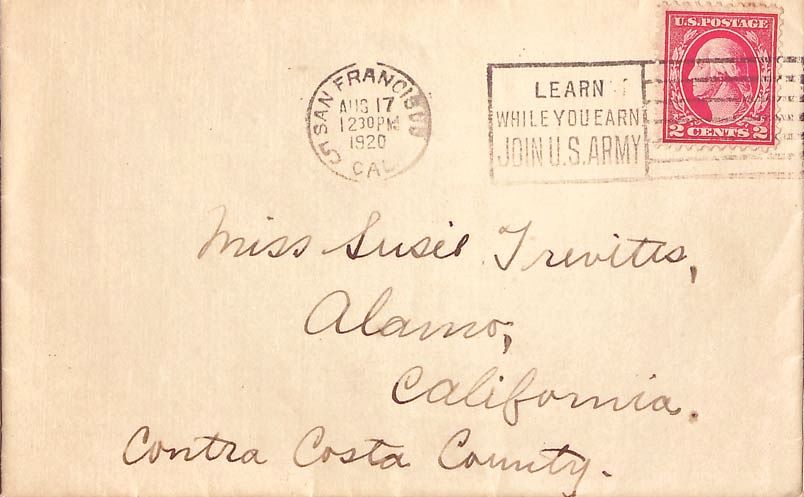 U.S. POSTAGE
2 CENTS 2
SAN FRANCISCO
AUG 17
12 30 PM
1920
CAL
5
LEARN
WHILE YOU EARN
JOIN U.S. ARMY
Miss Susie Trevitts,
Alamo,
California.
Contra Costa County.